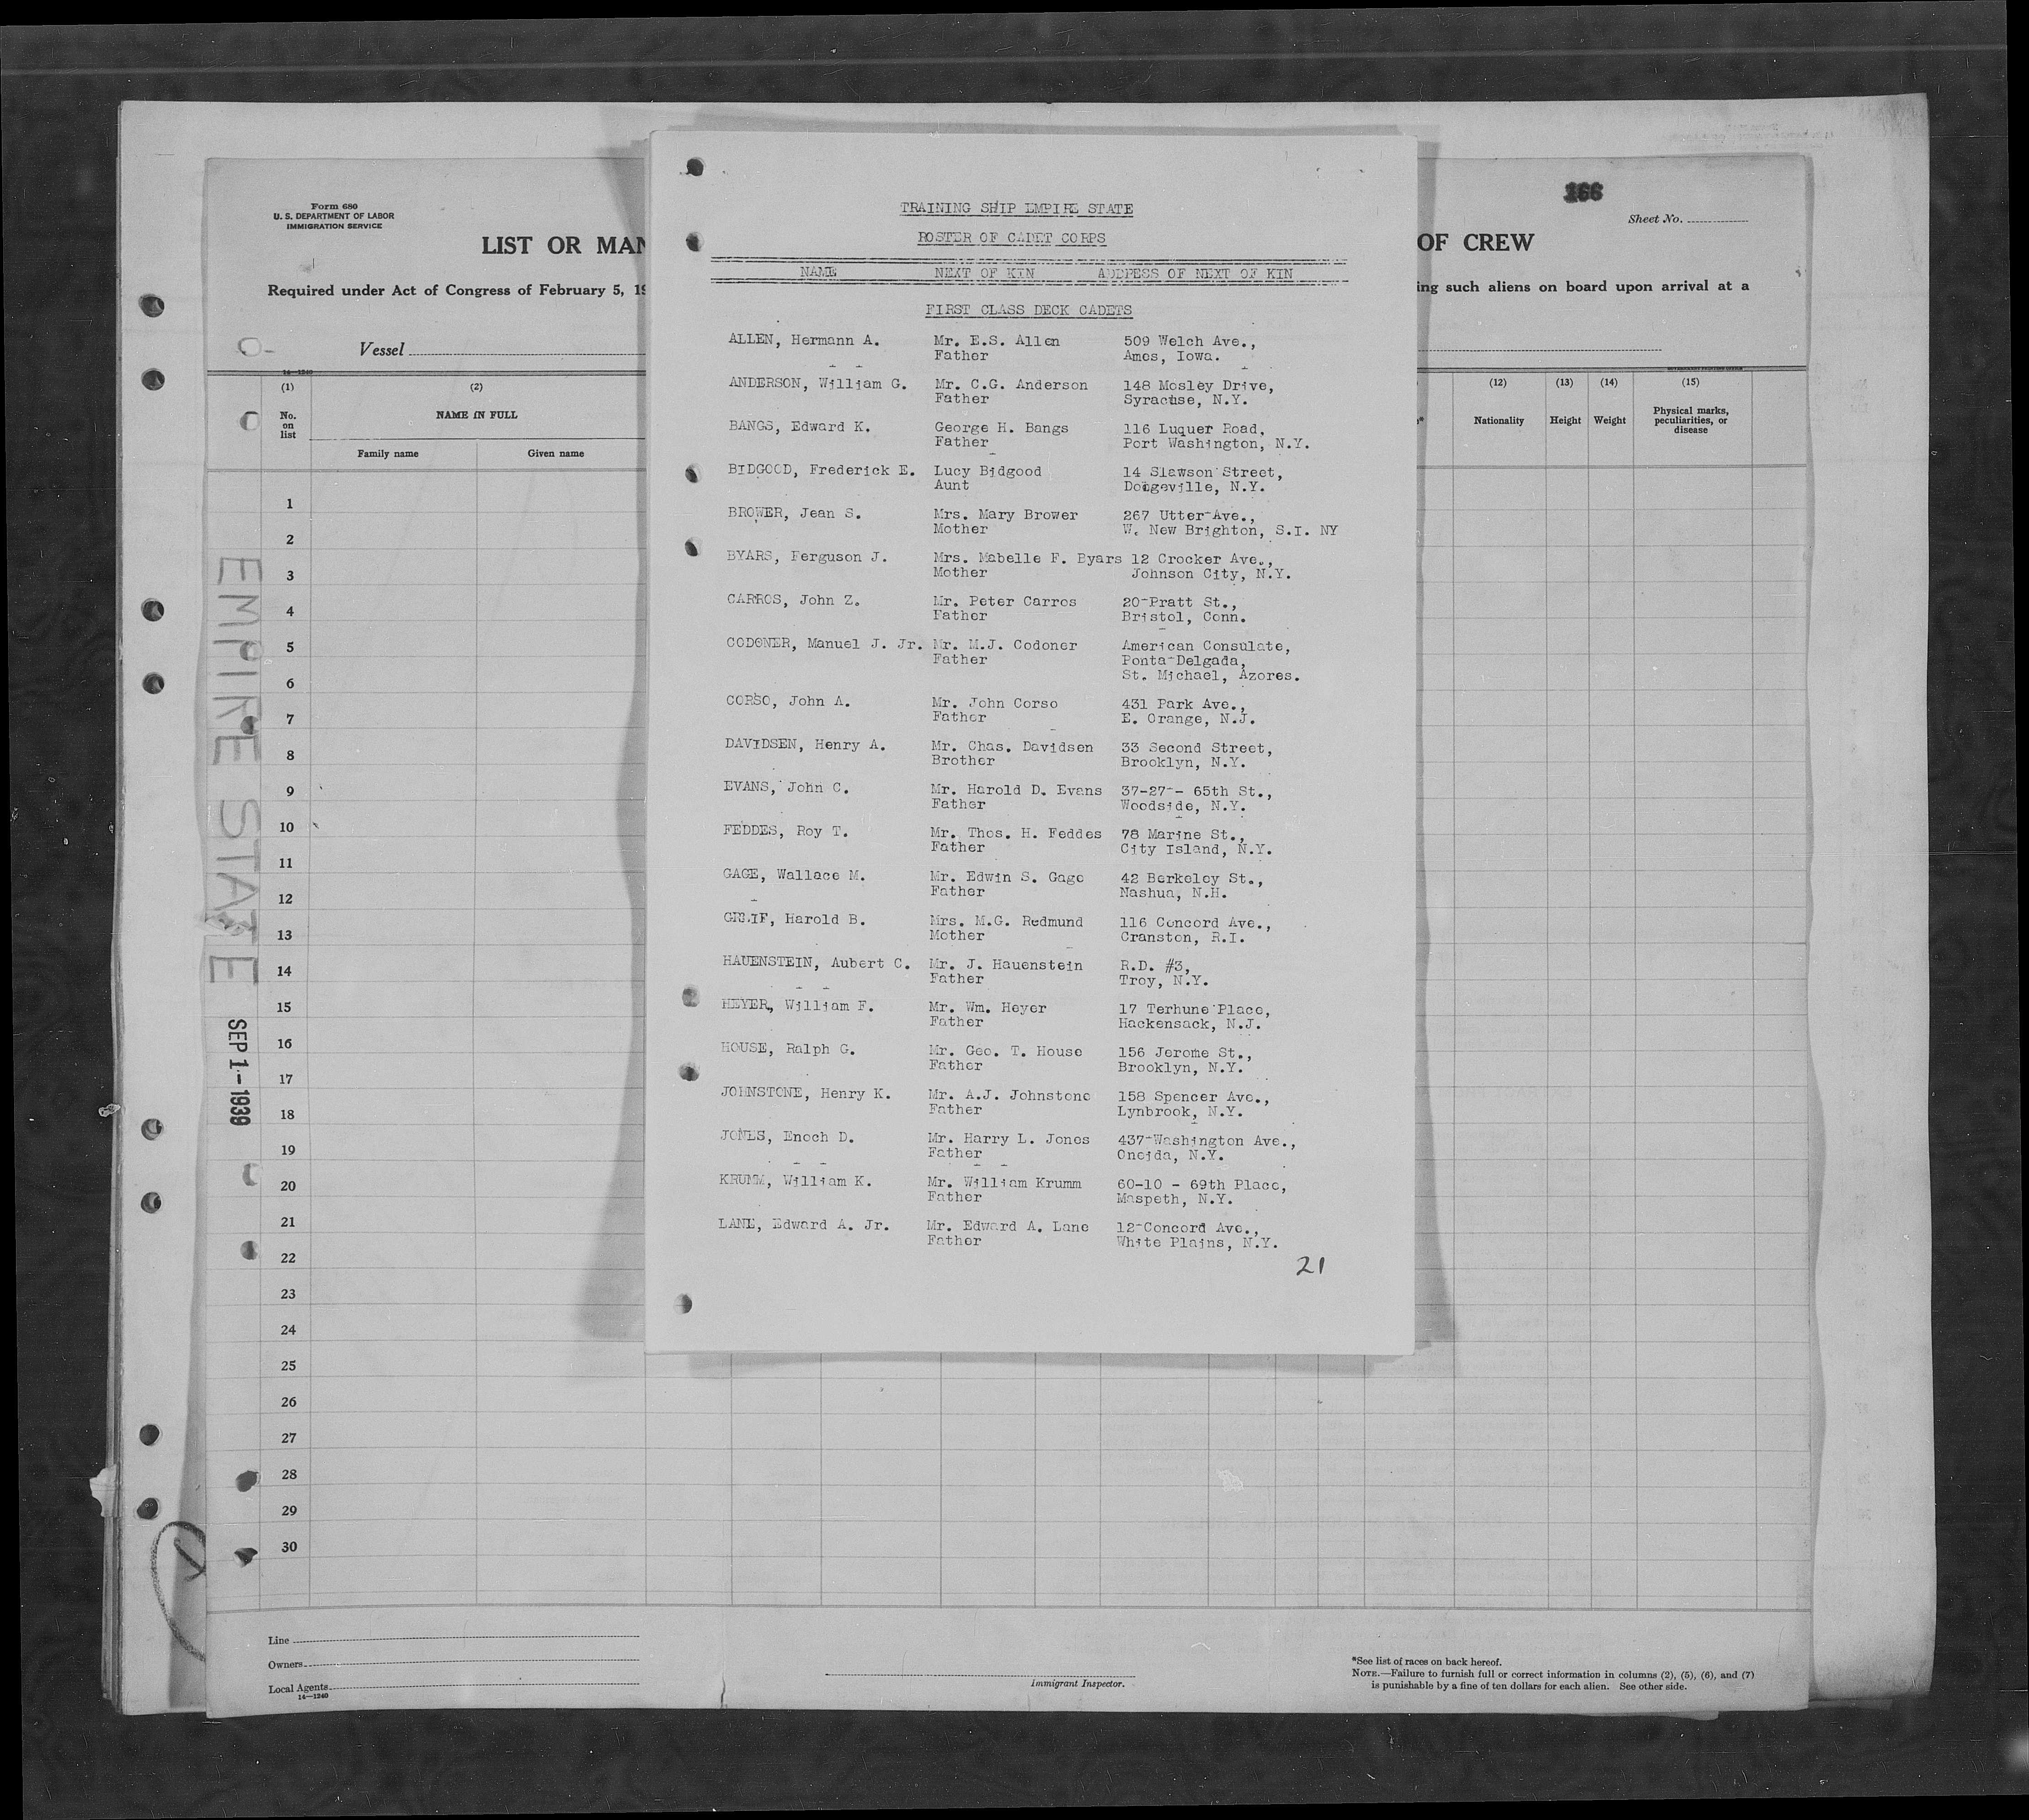 Form 680
U. S. DEPARTMENT OF LABOR
IMMIGRATION SERVICE
LIST OR MAN
OF CREW
166
Sheet No.
Required under Act of Congress of February 5, 19
ing such aliens on board upon arrival at a
Vessel
14—1240
(1)
No. on list
(2)
NAME IN FULL
Family name
Given name
(12)
Nationality
(13)
Height
(14)
Weight
(15)
Physical marks, peculiarities, or disease
TRAINING SHIP EMPIRE STATE
ROSTER OF CADET CORPS
NAME NEXT OF KIN ADDRESS OF NEXT OF KIN
FIRST CLASS DECK CADETS
ALLEN, Hermann A. Mr. E.S. Allen 509 Welch Ave.,
Father Ames, Iowa.
ANDERSON, William G. Mr. C.G. Anderson 148 Mosley Drive,
Father Syracuse, N.Y.
BANGS, Edward K. George H. Bangs 116 Luquer Road,
Father Port Washington, N.Y.
BIDGOOD, Frederick E. Lucy Bidgood 14 Slawson Street,
Aunt Dolgeville, N.Y.
BROWER, Jean S. Mrs. Mary Brower 267 Utter Ave.,
Mother W. New Brighton, S.I. NY
BYARS, Ferguson J. Mrs. Mabelle F. Byars 12 Crocker Ave.,
Mother Johnson City, N.Y.
CARROS, John Z. Mr. Peter Carros 20 Pratt St.,
Father Bristol, Conn.
CODONER, Manuel J. Jr. Mr. M.J. Codoner American Consulate,
Father Ponta-Delgada,
St. Michael, Azores.
CORSO, John A. Mr. John Corso 431 Park Ave.,
Father E. Orange, N.J.
DAVIDSEN, Henry A. Mr. Chas. Davidsen 33 Second Street,
Brother Brooklyn, N.Y.
EVANS, John C. Mr. Harold D. Evans 37-27 - 65th St.,
Father Woodside, N.Y.
FEDDES, Roy T. Mr. Thos. H. Feddes 78 Marine St.,
Father City Island, N.Y.
GAGE, Wallace M. Mr. Edwin S. Gage 42 Berkeley St.,
Father Nashua, N.H.
GREIF, Harold B. Mrs. M.G. Redmund 116 Concord Ave.,
Mother Cranston, R.I.
HAUENSTEIN, Aubert C. Mr. J. Hauenstein R.D. #3,
Father Troy, N.Y.
HEYER, William F. Mr. Wm. Heyer 17 Terhune Place,
Father Hackensack, N.J.
HOUSE, Ralph G. Mr. Geo. T. House 156 Jerome St.,
Father Brooklyn, N.Y.
JOHNSTONE, Henry K. Mr. A.J. Johnstone 158 Spencer Ave.,
Father Lynbrook, N.Y.
JONES, Enoch D. Mr. Harry L. Jones 437 Washington Ave.,
Father Oneida, N.Y.
KRUMM, William K. Mr. William Krumm 60-10 - 69th Place,
Father Maspeth, N.Y.
LANE, Edward A. Jr. Mr. Edward A. Lane 12 Concord Ave.,
Father White Plains, N.Y.
21
1
2
3
4
5
6
7
8
9
10
11
12
13
14
15
16
17
18
19
20
21
22
23
24
25
26
27
28
29
30
EMPIRE STATE
SEP 1-1939
Line
Owners
Local Agents
14—1240
Immigrant Inspector.
*See list of races on back hereof.
NOTE.—Failure to furnish full or correct information in columns (2), (5), (6), and (7)
is punishable by a fine of ten dollars for each alien. See other side.